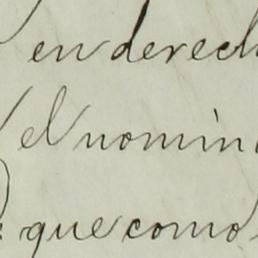 en derech
el nomin
que como